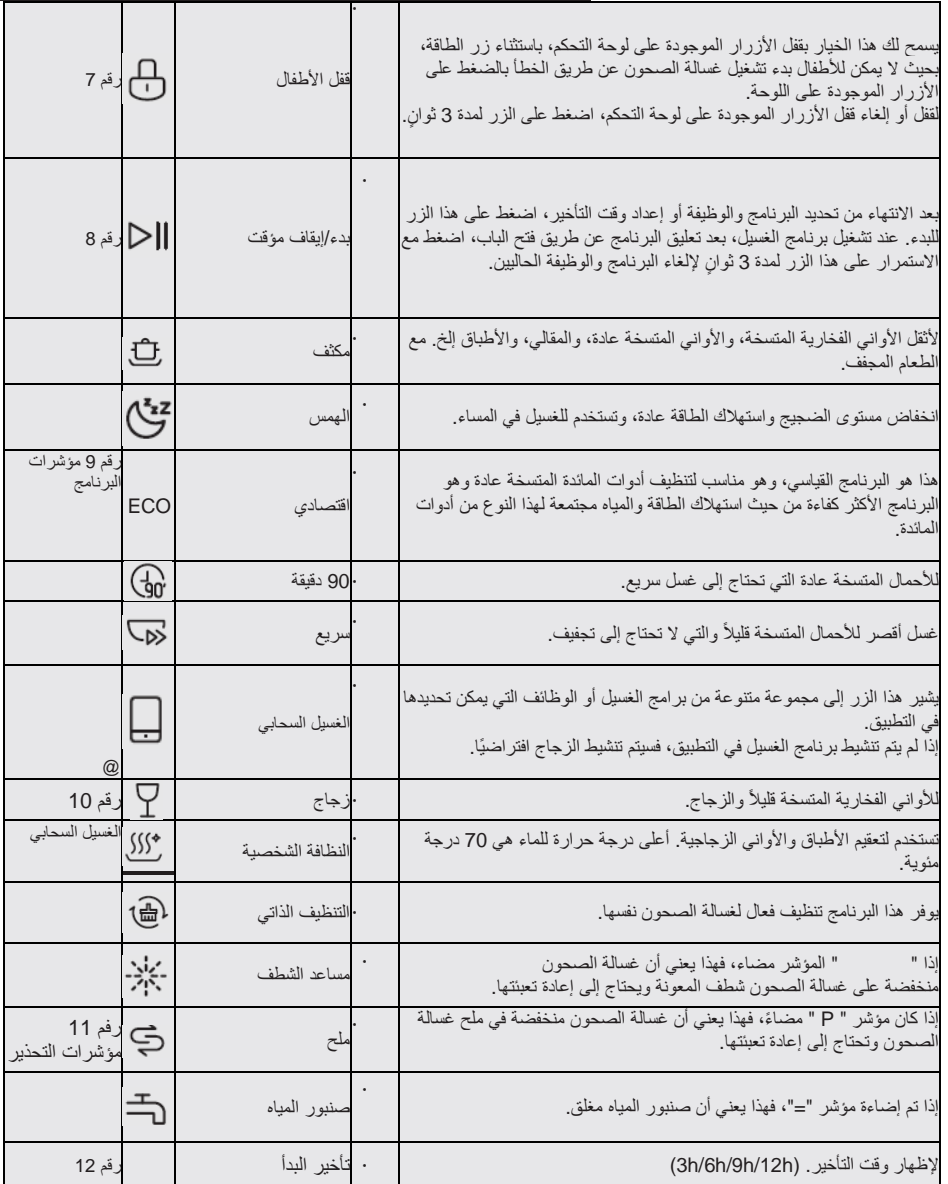 يسمح لك هذا الخيار بقفل الأزرار الموجودة على لوحة التحكم، باستثناء زر الطاقة،
بحيث لا يمكن للأطفال بدء تشغيل غسالة الصحون عن طريق الخطأ بالضغط على
الأزرار الموجودة على اللوحة.
لقفل أو إلغاء قفل الأزرار الموجودة على لوحة التحكم، اضغط على الزر لمدة 3 ثوانٍ.
قفل الأطفال
رقم 7
بعد الانتهاء من تحديد البرنامج والوظيفة أو إعداد وقت التأخير، اضغط على هذا الزر
للبدء. عند تشغيل برنامج الغسيل، بعد تعليق البرنامج عن طريق فتح الباب، اضغط مع
الاستمرار على هذا الزر لمدة 3 ثوانٍ لإلغاء البرنامج والوظيفة الحاليين.
بدء/إيقاف مؤقت
رقم 8
لأثقل الأواني الفخارية المتسخة، والأواني المتسخة عادة، والمقالي، والأطباق إلخ. مع
الطعام المجفف.
مكثف
انخفاض مستوى الضجيج واستهلاك الطاقة عادة، وتستخدم للغسيل في المساء.
الهمس
zzz
رقم 9 مؤشرات
البرنامج
هذا هو البرنامج القياسي، وهو مناسب لتنظيف أدوات المائدة المتسخة عادة وهو
البرنامج الأكثر كفاءة من حيث استهلاك الطاقة والمياه مجتمعة لهذا النوع من أدوات
المائدة.
اقتصادي
ECO
للأحمال المتسخة عادة التي تحتاج إلى غسل سريع.
90 دقيقة
90'
غسل أقصر للأحمال المتسخة قليلاً والتي لا تحتاج إلى تجفيف.
سريع
يشير هذا الزر إلى مجموعة متنوعة من برامج الغسيل أو الوظائف التي يمكن تحديدها
في التطبيق.
إذا لم يتم تنشيط برنامج الغسيل في التطبيق، فسيتم تنشيط الزجاج افتراضيًا.
الغسيل السحابي
@
للأواني الفخارية المتسخة قليلاً والزجاج.
زجاج
رقم 10
الغسيل السحابي
تستخدم لتعقيم الأطباق والأواني الزجاجية. أعلى درجة حرارة للماء هي 70 درجة
مئوية.
النظافة الشخصية
يوفر هذا البرنامج تنظيف فعال لغسالة الصحون نفسها.
التنظيف الذاتي
إذا " " المؤشر مضاء، فهذا يعني أن غسالة الصحون
منخفضة على غسالة الصحون شطف المعونة ويحتاج إلى إعادة تعبئتها.
مساعد الشطف
إذا كان مؤشر " P " مضاءً، فهذا يعني أن غسالة الصحون منخفضة في ملح غسالة
الصحون وتحتاج إلى إعادة تعبئتها.
ملح
رقم 11
مؤشرات التحذير
إذا تم إضاءة مؤشر "="، فهذا يعني أن صنبور المياه مغلق.
صنبور المياه
لإظهار وقت التأخير. (3h/6h/9h/12h)
تأخير البدأ
رقم 12